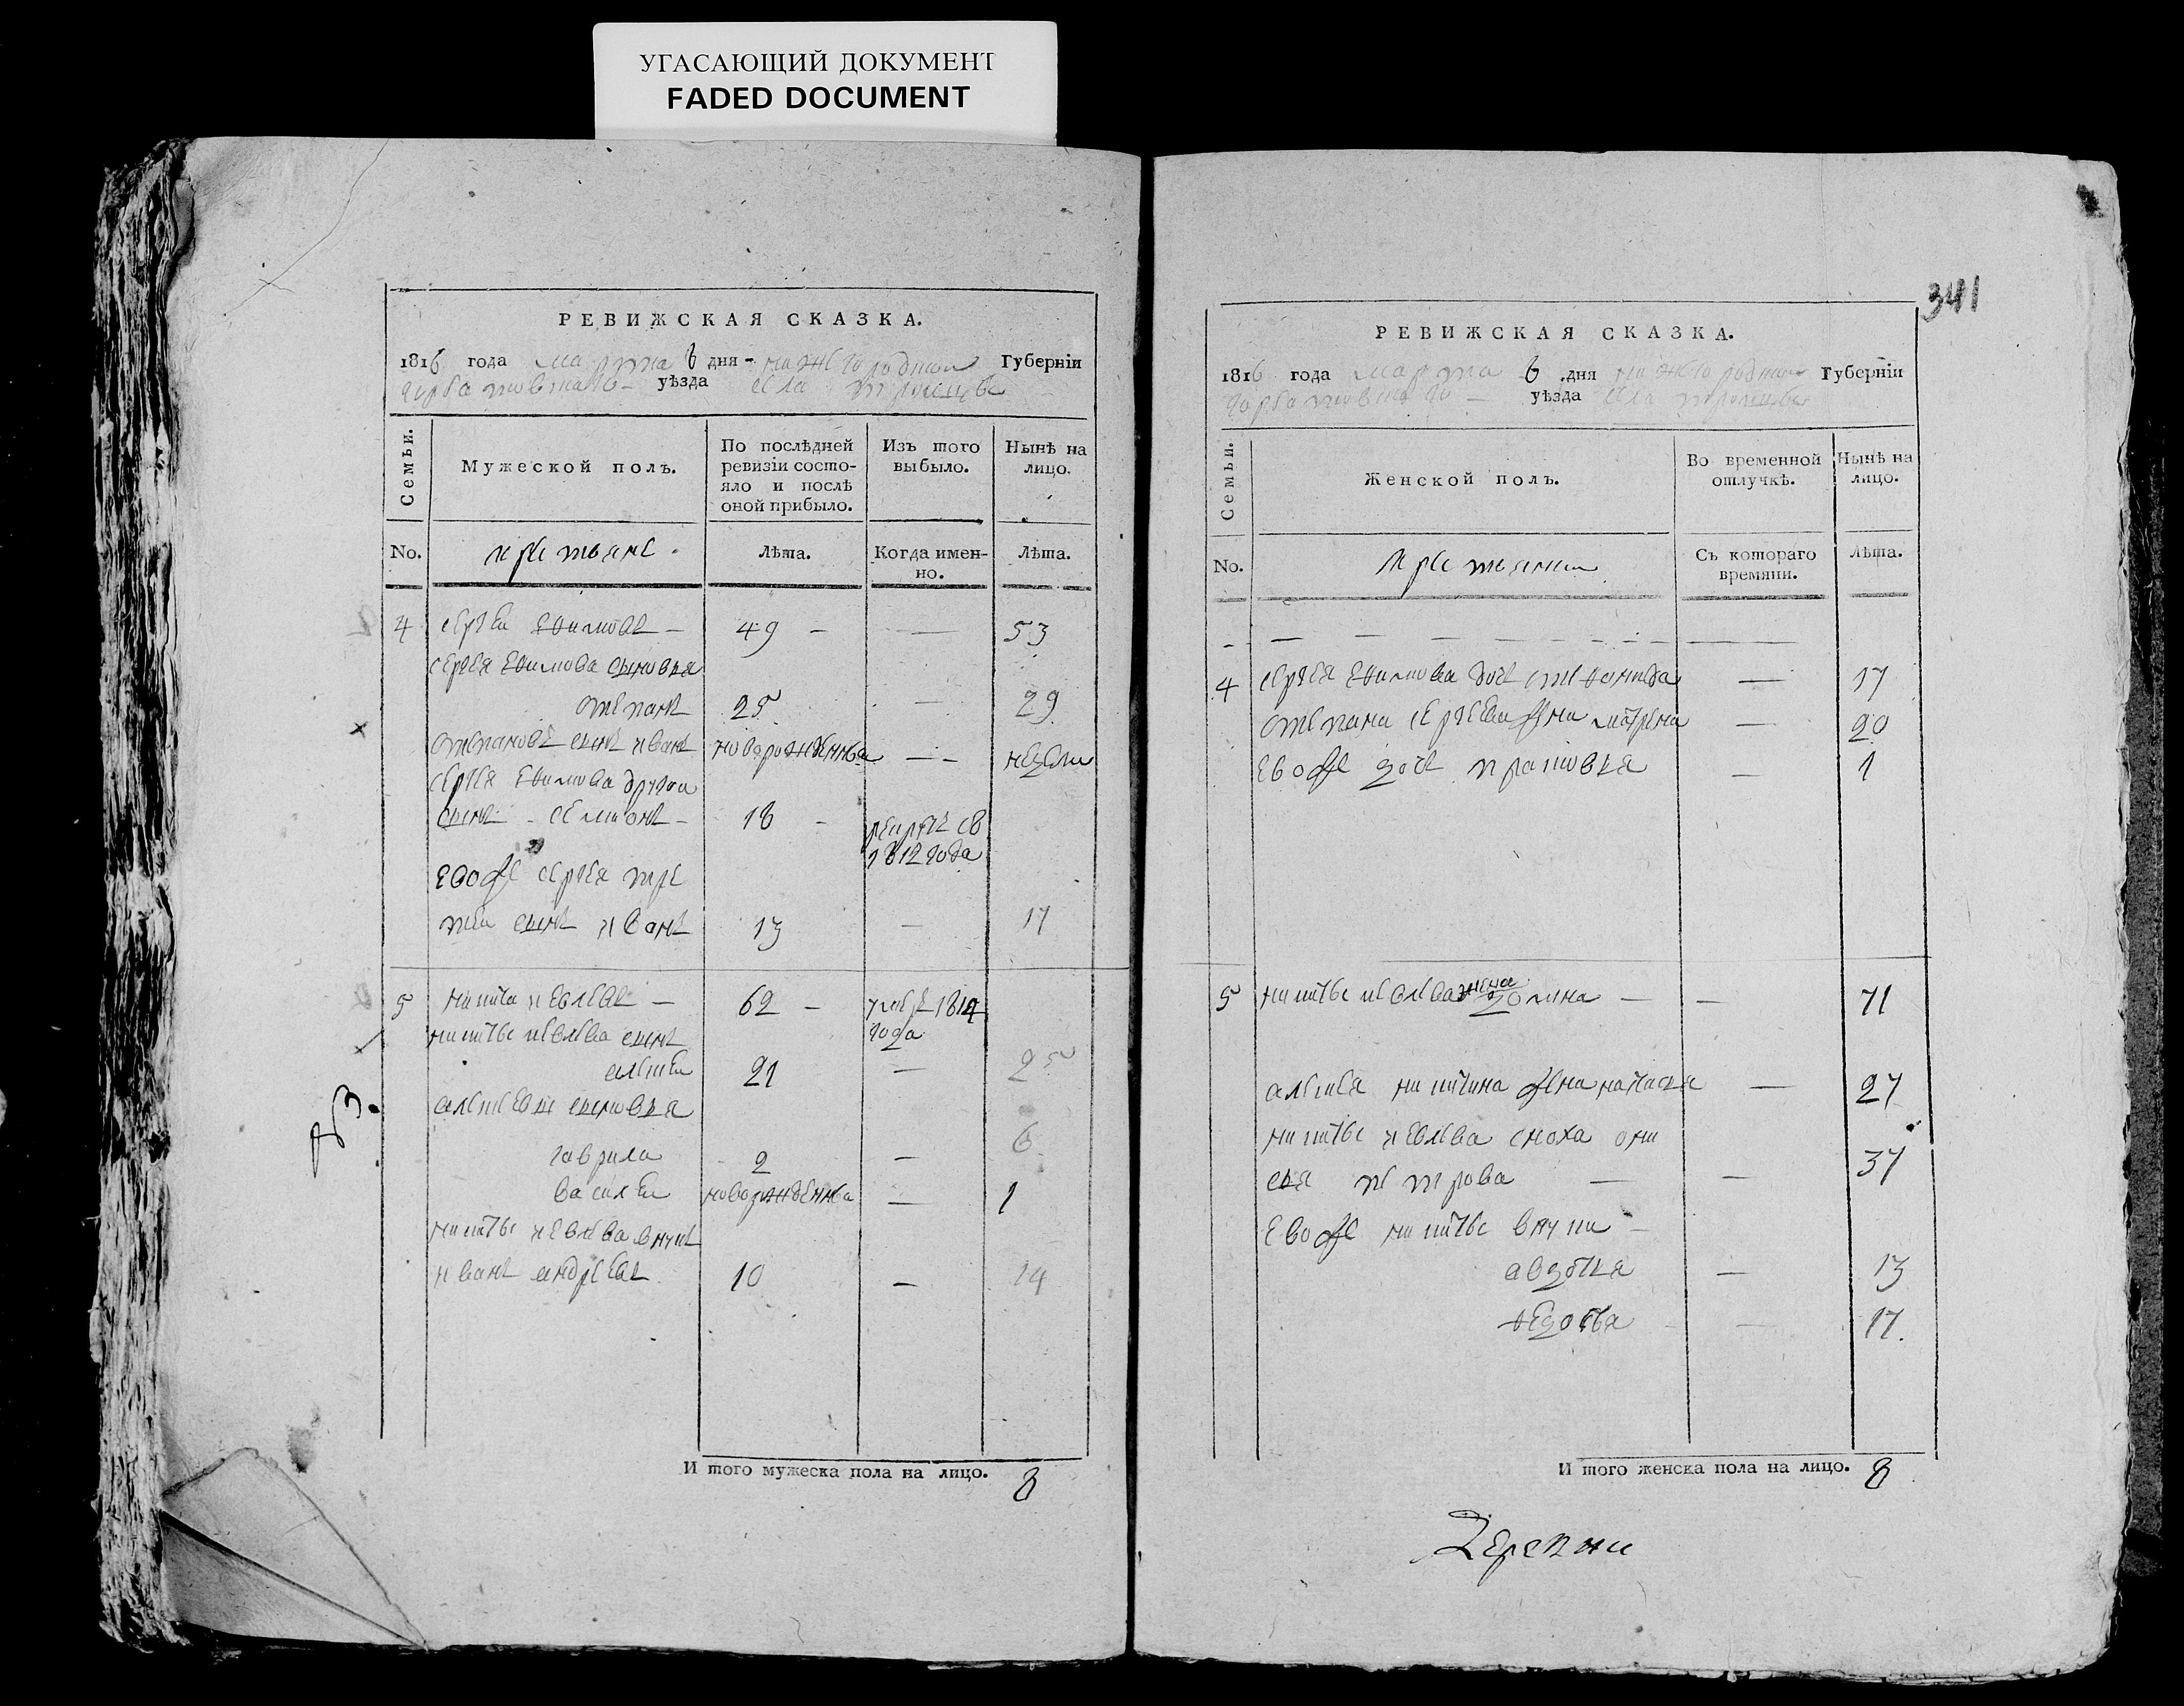 УГАСАЮЩИЙ ДОКУМЕНТ
FADED DOCUMENT
РЕВИЖСКАЯ СКАЗКА.
1816 года марта 6 дня нижегородской Губерніи
горбатовскаго уѣзда села
Семьи.
Мужеской полъ.
По послѣдней ревизіи состояло и послѣ оной прибыло.
Изъ того выбыло.
Нынѣ на лицо.
No.
крестьяне
Лѣта.
Когда именно.
Лѣта.
4 сергеи ефимовъ 49 — 53
сергея ефимова сыновья
степанъ 25 — 29
степановъ сынъ иванъ новорожденныи — недели
сергея ефимова другои
сынъ 18
1812 года
евоже сергея тре
теи сынъ иванъ 13 — 17
5 никита иевлевъ — 62 — 1814
года
никиты иевлева сынъ
алексеи 21 — 25
алексеевы сыновья
гаврила 2 — 6
василеи новорожденныи — 1
никиты иевлева внукъ
иванъ андреевъ 10 — 14
И того мужеска пола на лицо. 8
341
РЕВИЖСКАЯ СКАЗКА.
1816 года марта 6 дня нижегородской Губерніи
горбатовскаго уѣзда села
Семьи.
Женской полъ.
Во временной отлучкѣ.
Нынѣ на лицо.
No.
крестьянки
Съ котораго времяни.
Лѣта.
4 сергея ефимова дочь стефанида — 17
степана сергеева жена матрена — 20
евоже дочь прасковья — 1
5 никиты иевлева жена домна — — 71
алексея никитина жена наталья — 27
никиты иевлева сноха
петрова — — 37
евоже никиты внуки —
авдотья — 13
федосья — 17.
И того женска пола на лицо. 8
Деревни